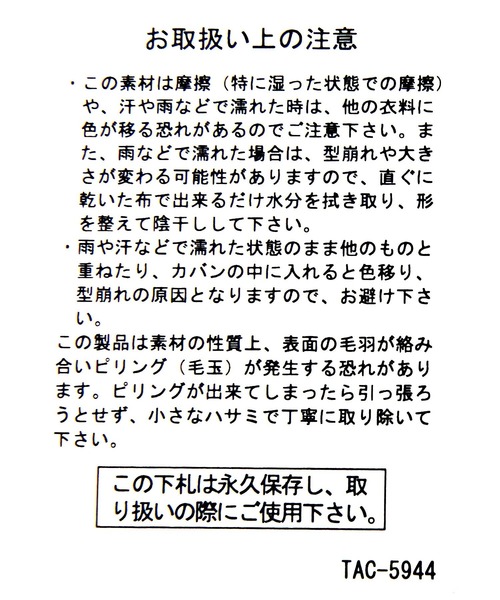 お取扱い上の注意
・この素材は摩擦（特に湿った状態での摩擦）
や、汗や雨などで濡れた時は、他の衣料に
色が移る恐れがあるのでご注意下さい。ま
た、雨などで濡れた場合は、型崩れや大き
さが変わる可能性がありますので、直ぐに
乾いた布で出来るだけ水分を拭き取り、形
を整えて陰干しして下さい。
・雨や汗などで濡れた状態のまま他のものと
重ねたり、カバンの中に入れると色移り、
型崩れの原因となりますので、お避け下さ
い。
この製品は素材の性質上、表面の毛羽が絡み
合いピリング（毛玉）が発生する恐れがあり
ます。ピリングが出来てしまったら引っ張ろ
うとせず、小さなハサミで丁寧に取り除いて
下さい。
この下札は永久保存し、取
り扱いの際にご使用下さい。
TAC-5944